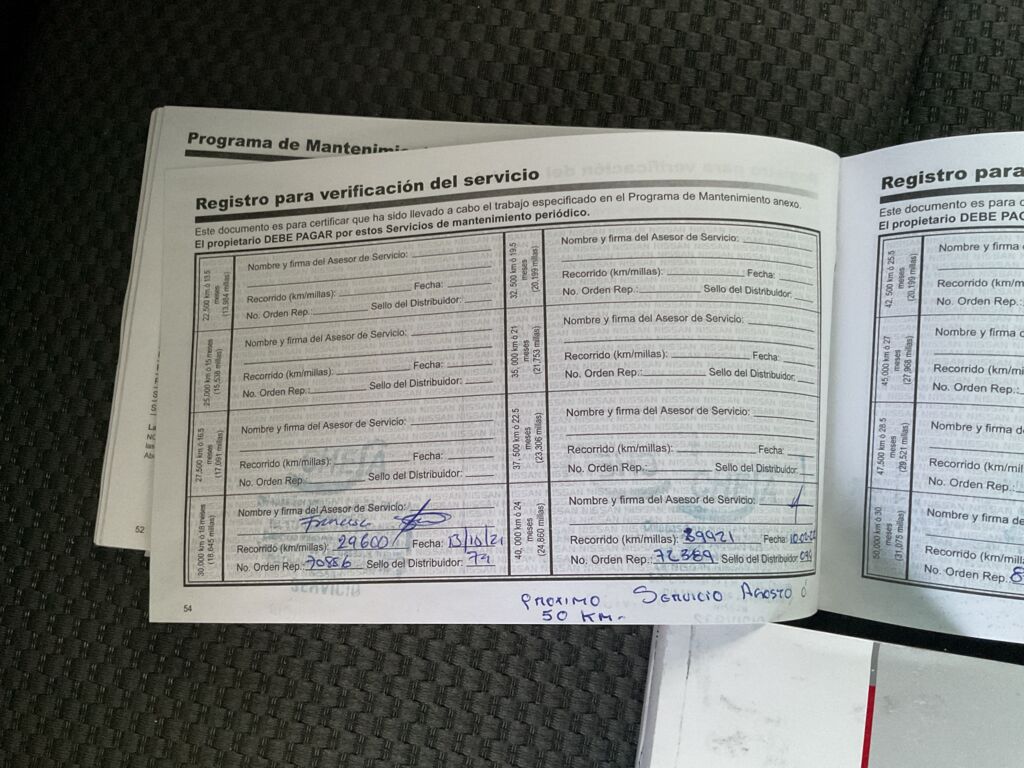 Programa de Mantenimie
Registro para verificación del servicio
Este documento es para certificar que ha sido llevado a cabo el trabajo especificado en el Programa de Mantenimiento anexo.
El propietario DEBE PAGAR por estos Servicios de mantenimiento periódico.
22,500 km ó 13.5
meses
(13,984 millas)
Nombre y firma del Asesor de Servicio:
Recorrido (km/millas): Fecha:
No. Orden Rep.: Sello del Distribuidor:
25,000 km ó 15 meses
(15,538 millas)
Nombre y firma del Asesor de Servicio:
Recorrido (km/millas): Fecha:
No. Orden Rep.: Sello del Distribuidor:
27,500 km ó 16.5
meses
(17,091 millas)
Nombre y firma del Asesor de Servicio:
Recorrido (km/millas): Fecha:
No. Orden Rep. Sello del Distribuidor:
30,000 km ó 18 meses
(18,645 millas)
Nombre y firma del Asesor de Servicio:
Francisco
Recorrido (km/millas): 29600 Fecha: 13/10/21
No. Orden Rep.: 70886 Sello del Distribuidor:
32, 500 km ó 19.5
meses
(20,199 millas)
Nombre y firma del Asesor de Servicio:
Recorrido (km/millas): Fecha:
No. Orden Rep.: Sello del Distribuidor:
35, 000 km ó 21
meses
(21,753 millas)
Nombre y firma del Asesor de Servicio:
Recorrido (km/millas): Fecha:
No. Orden Rep.: Sello del Distribuidor:
37, 500 km ó 22.5
meses
(23,306 millas)
Nombre y firma del Asesor de Servicio:
Recorrido (km/millas): Fecha:
No. Orden Rep. Sello del Distribuidor:
40, 000 km ó 24
meses
(24,860 millas)
Nombre y firma del Asesor de Servicio:
Recorrido (km/millas): 39921 Fecha:
No. Orden Rep.: 72389 Sello del Distribuidor:
PROXIMO SERVICIO AGOSTO ó
50 KM.
54
52
Registro para
Este documento es para c
El propietario DEBE PAG
42, 500 km ó 25.5
meses
(20,199 millas)
Nombre y firma
Recorrido (km/m
No. Orden Rep.:
45,000 km ó 27
meses
(27,968 millas)
Nombre y firma
Recorrido (km/mi
No. Orden Rep.:
47,500 km ó 28.5
meses
(29,521 millas)
Nombre y firma d
Recorrido (km/mill
No. Orden Rep.
50,000 km ó 30
meses
(31,075 millas)
Nombre y firma de
Recorrido (km/milla
No. Orden Rep. 8